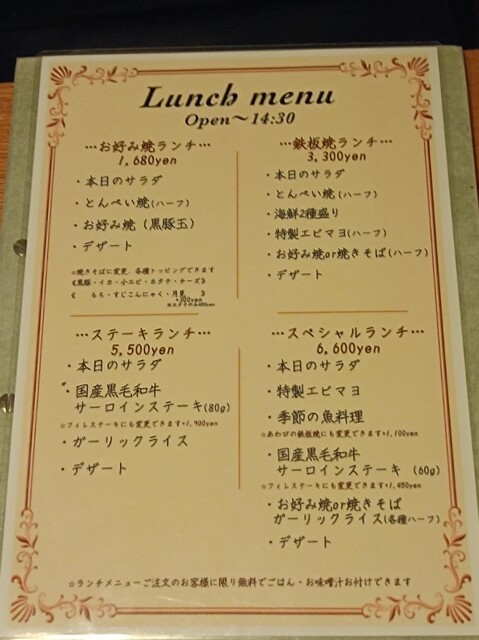 Lunch menu
Open～14:30
…お好み焼ランチ…
1,680yen
・本日のサラダ
・とんぺい焼(ハーフ)
・お好み焼（黒豚玉）
・デザート
☆焼きそばに変更、各種トッピングできます
《黒豚・イカ・小エビ・ホタテ・チーズ》
《 もち・すじこんにゃく・月見 》
…鉄板焼ランチ…
3,300yen
・本日のサラダ
・とんぺい焼(ハーフ)
・海鮮2種盛り
・特製エビマヨ(ハーフ)
・お好み焼or焼きそば(ハーフ)
・デザート
…ステーキランチ…
5,500yen
・本日のサラダ
・国産黒毛和牛
サーロインステーキ(80g)
☆フィレステーキにも変更できます+1,900yen
・ガーリックライス
・デザート
…スペシャルランチ…
6,600yen
・本日のサラダ
・特製エビマヨ
・季節の魚料理
☆あわびの鉄板焼にも変更できます+1,100yen
・国産黒毛和牛
サーロインステーキ (60g)
☆フィレステーキにも変更できます+1,450yen
・お好み焼or焼きそば
ガーリックライス(各種ハーフ)
・デザート
☆ランチメニューご注文のお客様に限り無料でごはん・お味噌汁お付けできます